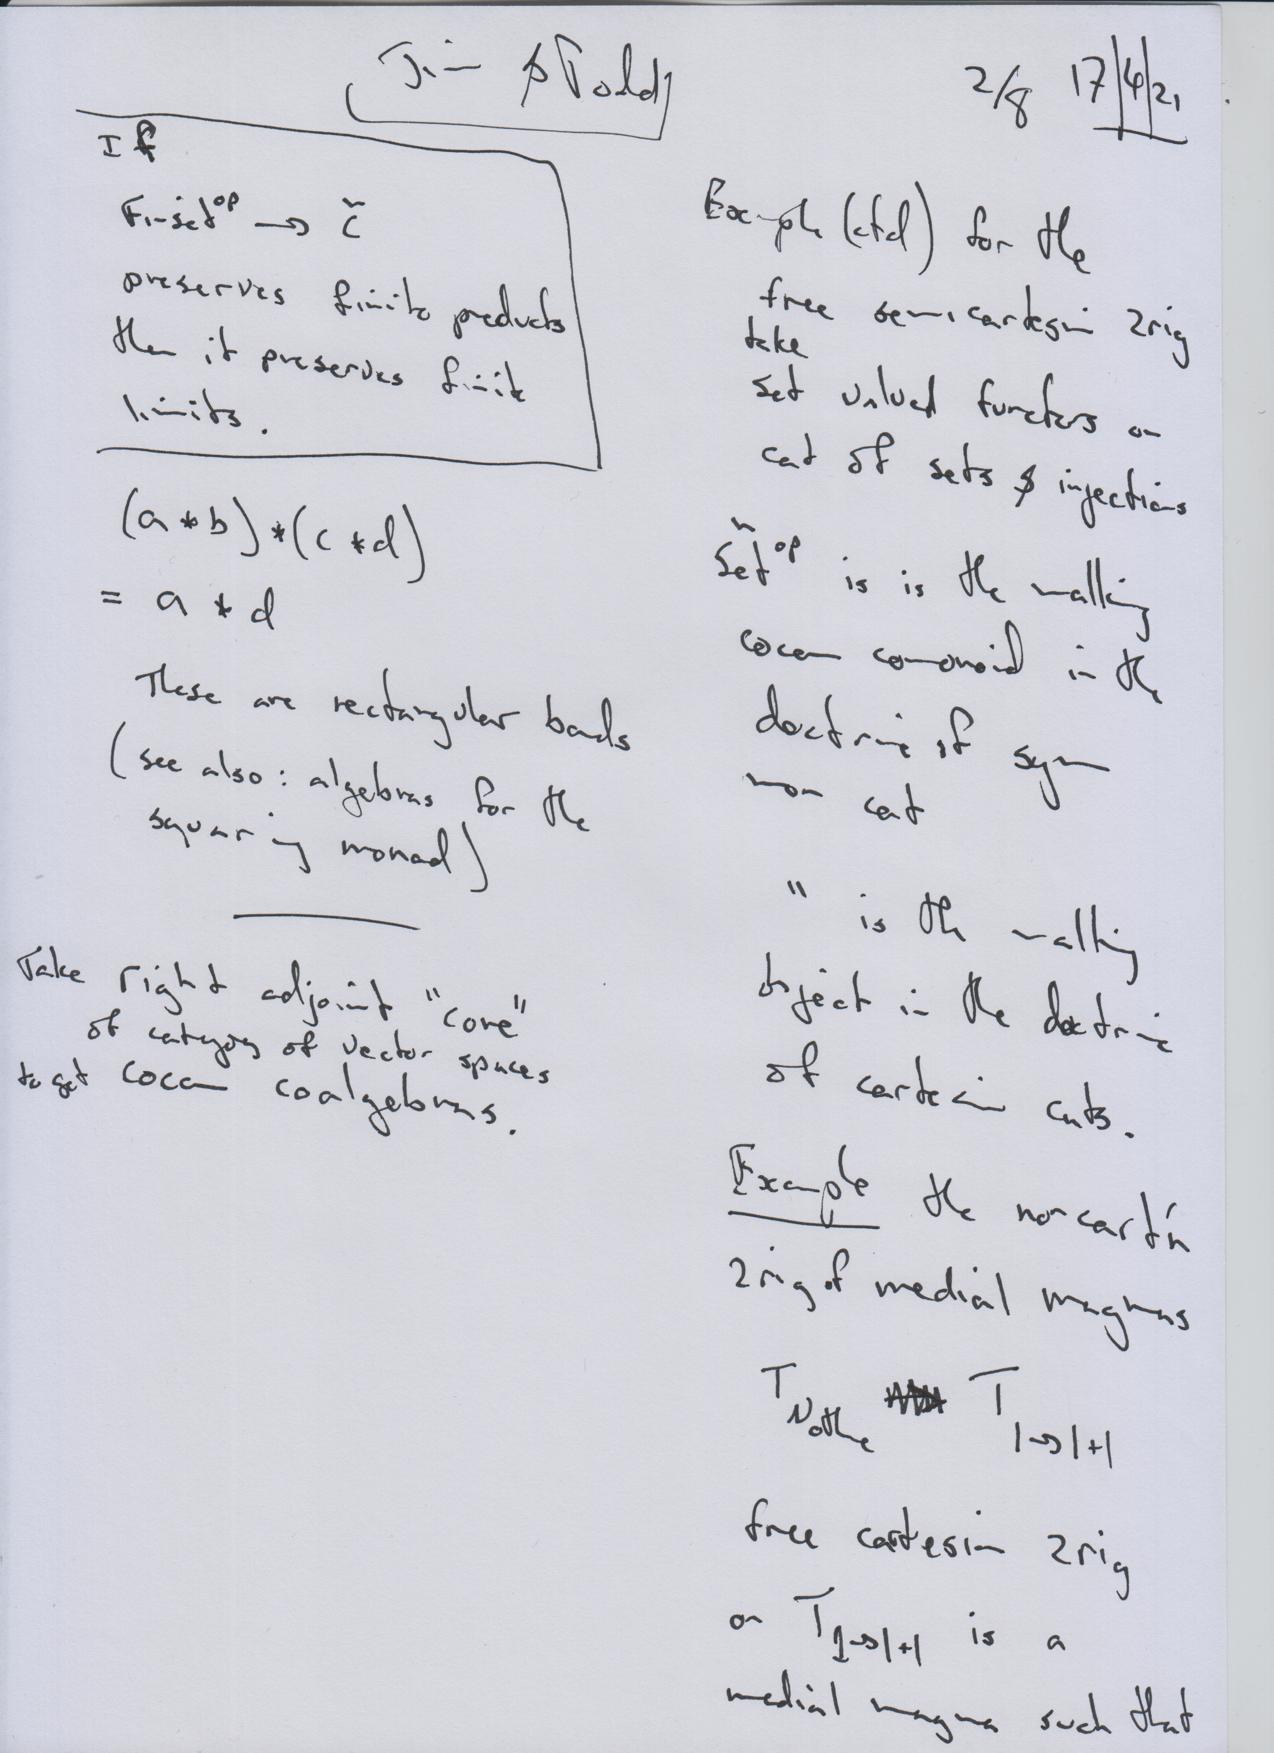 Jim & Todd
2/8 17/4/21
If
Finset^op → C̃
preserves finite products
then it preserves finite
limits.
(a * b) * (c * d)
= a * d
These are rectangular bands
(see also: algebras for the
squaring monad)
Take right adjoint "core"
of category of vector spaces
to get cocom coalgebras.
Example (ctd) for the
free semicartesin 2rig
take
set valued functors on
cat of sets & injections
Set^op is is the walking
cocom comonoid in the
doctrine of sym
mon cat
" is the walking
object in the doctrine
of cartesin cats.
Example the noncart'n
2rig of medial magmas
T Nothe T 1→1+1
free cartesin 2rig
on T 1→1+1 is a
medial magma such that